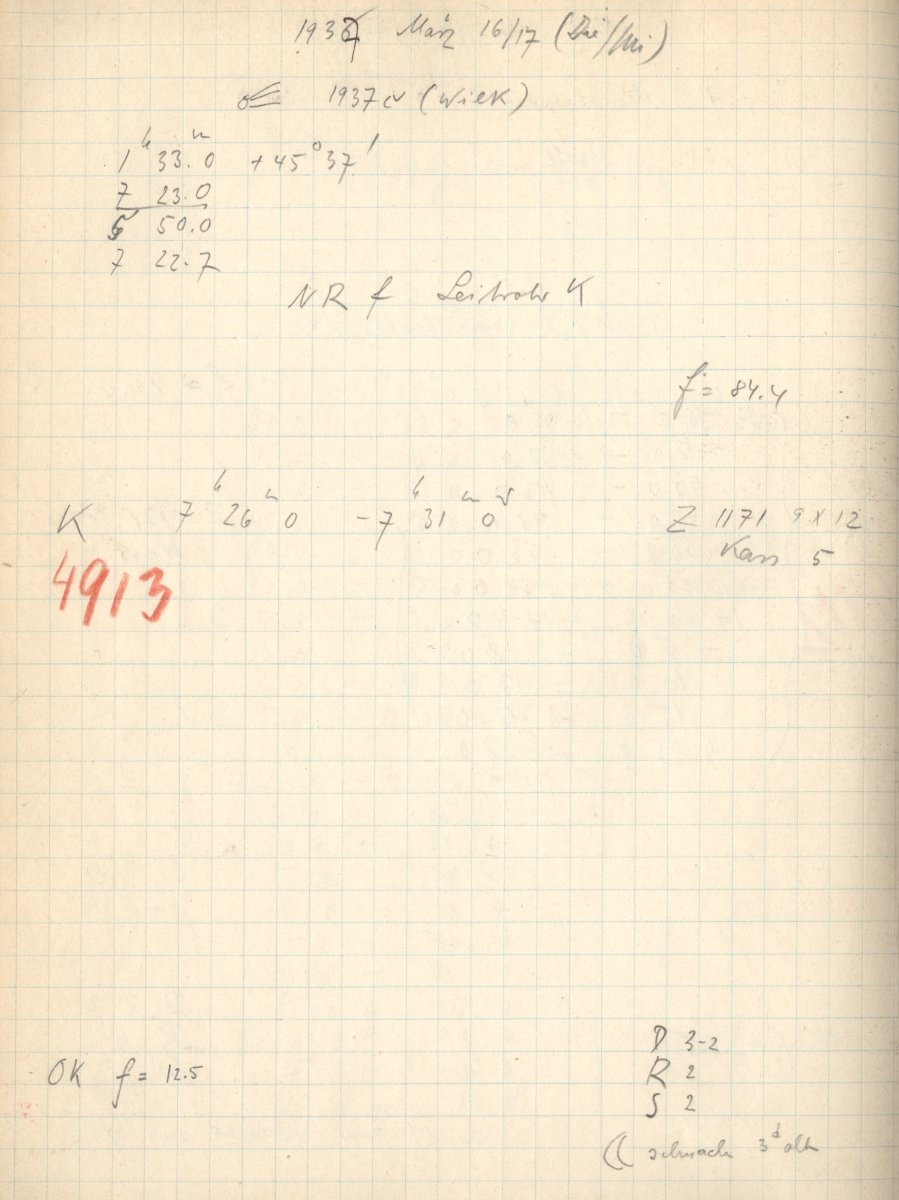 1937 März 16/17 (Die/Mi)
☄ 1937 c (Wilk)
1ʰ 33.0ᵐ +45° 37'
7 23.0
5 50.0
7 22.7
NR f Leitrohr K
f = 84.4
K 7ʰ 26ᵐ 0 -7ʰ 31ᵐ 0ˢ Z 1171 9x12
Kass 5
4913
D 3-2
OK f = 12.5 R 2
S 2
☾ schwach 3ᵈ alt